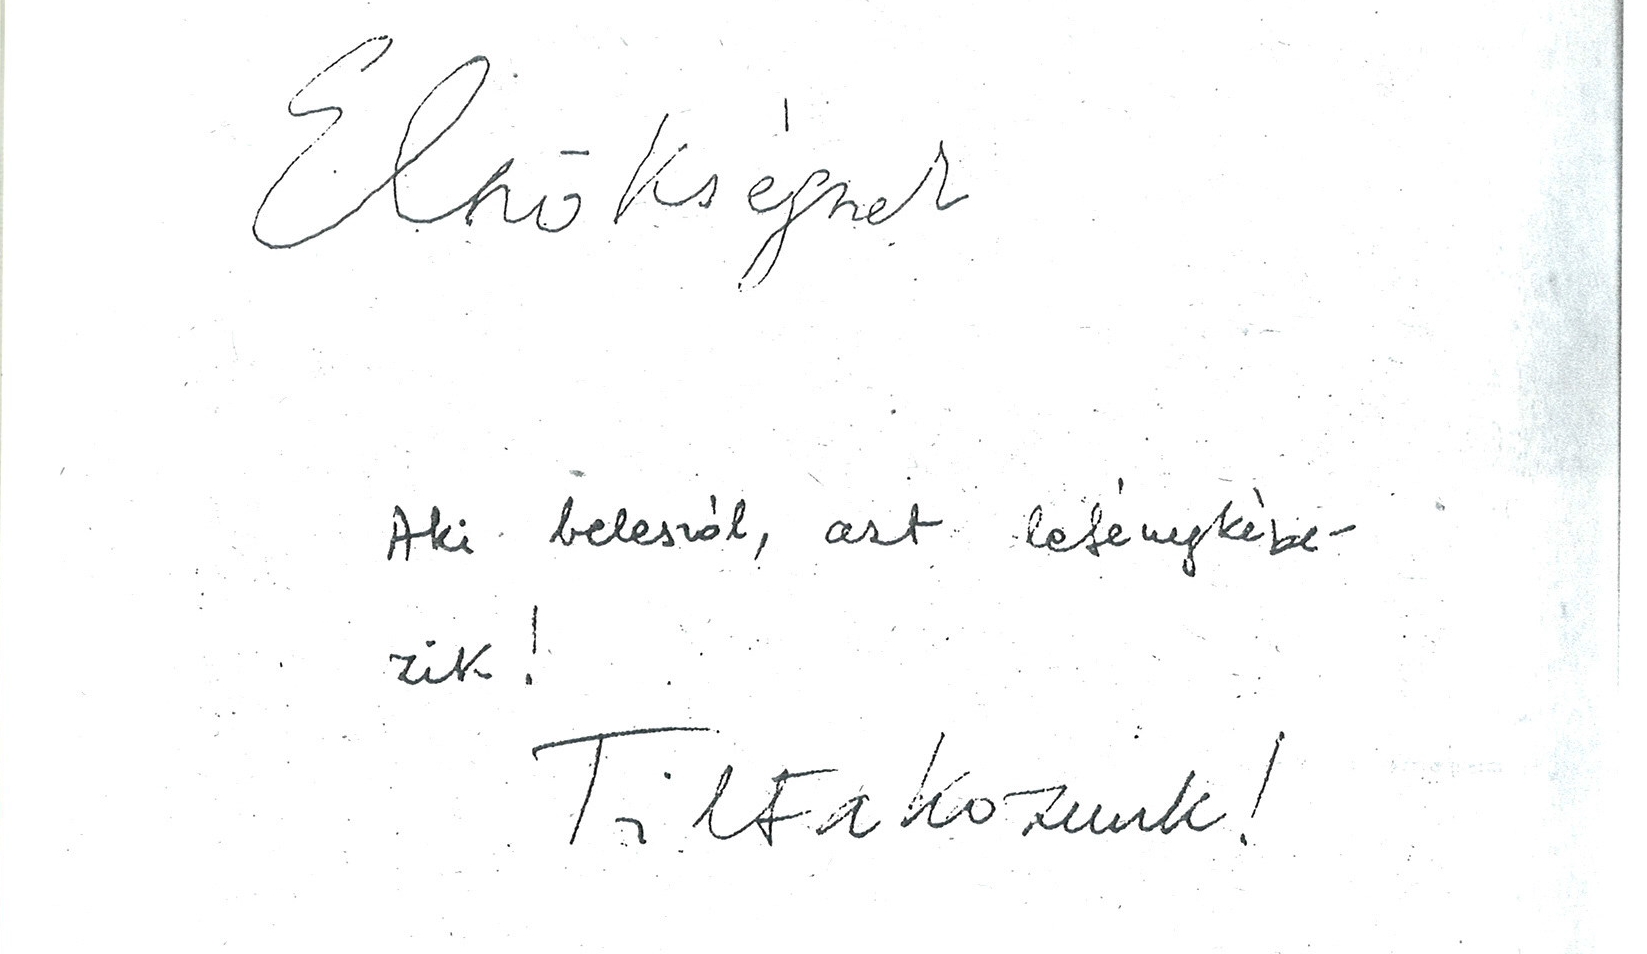 Elnökségnek
Aki beleszól, azt lefényképe-
zik!
Tiltakozunk!